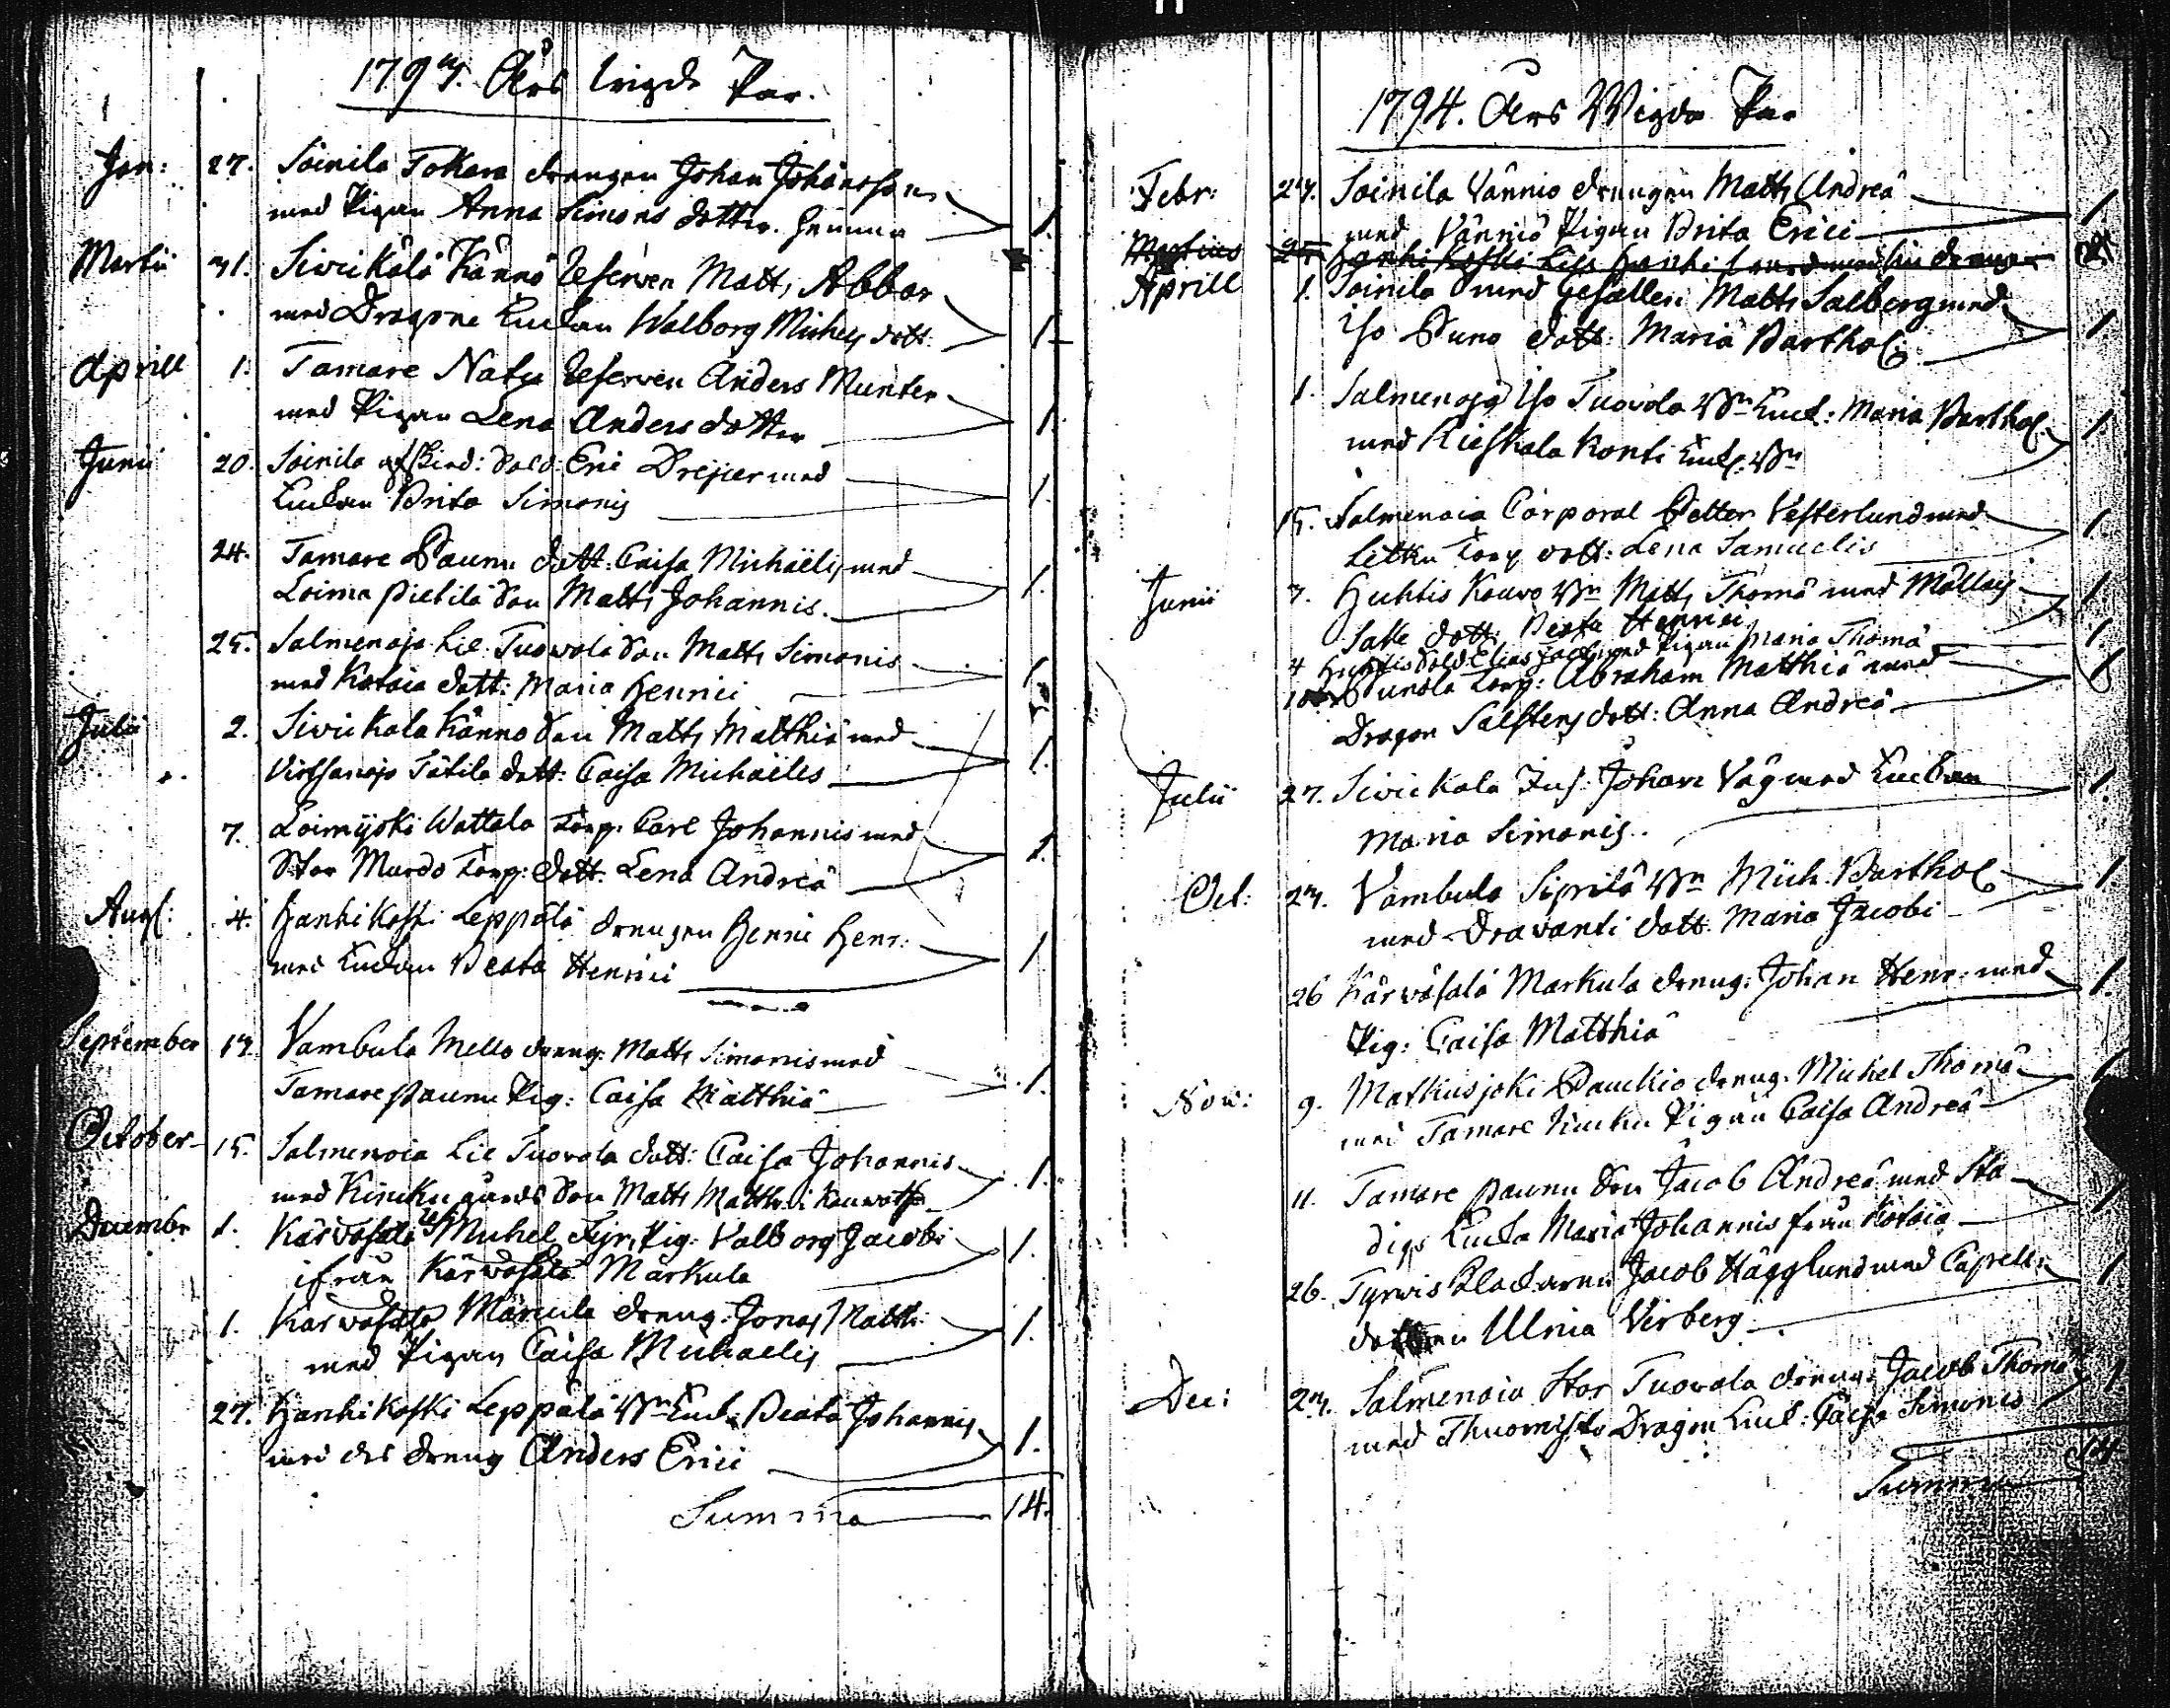 1793. Års wigde Par.
Jan: 27. Soinila Tokara drengen Johan Johansson
med Pigan Anna Simons dotter. hemma 1.
Martii 31. Sivikälä Kännö Reserven Matts Abbor
med Dragone Enckan Walborg Michels dott. 1
Aprill 1. Tamare Natza Reserven Anders Munter
med Pigan Lena Anders dotter 1.
Junii 20. Soinila Sold: Eric Drejier med
Enckan Brita Simonis 1.
24. Tamare Paunu dott: Caisa Michaëlis med
Loima Pietilä Son Matts Johannis. 1.
25. Salmenoja Lill Tuovola Son Matts Simonis
med Kotoia dott: Maria Henrici 1
Julii 2. Sivikala Känno Son Matts Matthiæ med
Virtsanojo Tätilä dott: Caisa Michaëlis 1.
7. Loimijoki Wattala Torp: Carl Johannis med
Stor Murdo Torp: dott. Lena Andreæ 1.
Aug: 4. Hanhikoski Leppälä drengen Henric Henr:
med Enckan Beata Henrici 1
September 13. Vambula Mello dreng: Matts Simonis med
Tamare Paunu Pig: Caisa Matthiæ 1.
October 15. Salmenoia Lill Tuovola dott: Caisa Johannis
med Kinckugårds Son Matts Matth: i 1.
Decembr 1. Karvasala Michel Pig: Valborg Jacobi
ifrån Karvasala Markula 1.
1. Karvasala Marcula dreng: Jonas Matth:
med Pigan Caisa Michaelis 1.
27. Hanhikoski Leppälä Enck: Beata Johannis
med des dreng Anders Erici 1.
Summa 14.
1794. Års Wigda Par
Febr: 23. Soinila Vännio drengen Matts Andreæ
med Vännio Pigan Brita Erici 1.
Martius 25 Hanhikoski Lisa Hanhi med sin drengen
Aprill 1. Soinila med Gesällen Matts Salberg med
Iso Puno dott: Maria Barthol: 1
1. Salmenoja Iso Tuovola Enck: Maria Barthol.
med Rieskala Konti Enckl: 1.
15. Salmenoia Corporal Petter Vesterlund med
Letku Torp dott: Lena Samuelis 1.
Junii 3. Huhtis Kouvo Matts Thomæ med
dott: Beata Henrici 1
4 Huhtis Sold Elias med Pigan Maria Thomæ 1.
Torp: Abraham Matthiæ med
Dragon Salstens dott: Anna Andreæ 1
Julii 27. Sivikala Inh: Johan Våg med Enckan
Maria Simonis. 1.
Oct: 23. Vambula Siprilä Mich. Barthol
med Dravanti dott. Maria Jacobi 1
26 Kärväsälä Markula dreng: Johan Henr: med
Pig: Caisa Matthiæ 1.
Nov: 9. Matkusjoki Pauckio dreng. Michel Thomæ
med Tamare Pigan Caisa Andreæ
11. Tamare Paunu Son Jacob Andreæ med Sta
digs Encka Maria Johannis från Kotoia 1
26. Tyrvis Klockaren Jacob Hägglund med Capell:
dottren Ulrica Virberg 1
Dec: 23. Salmenoia Stor Tuovola dreng: Jacob Thomæ
med Thuomisto Dragon Enck: Caisa Simonis 1
Summa 14